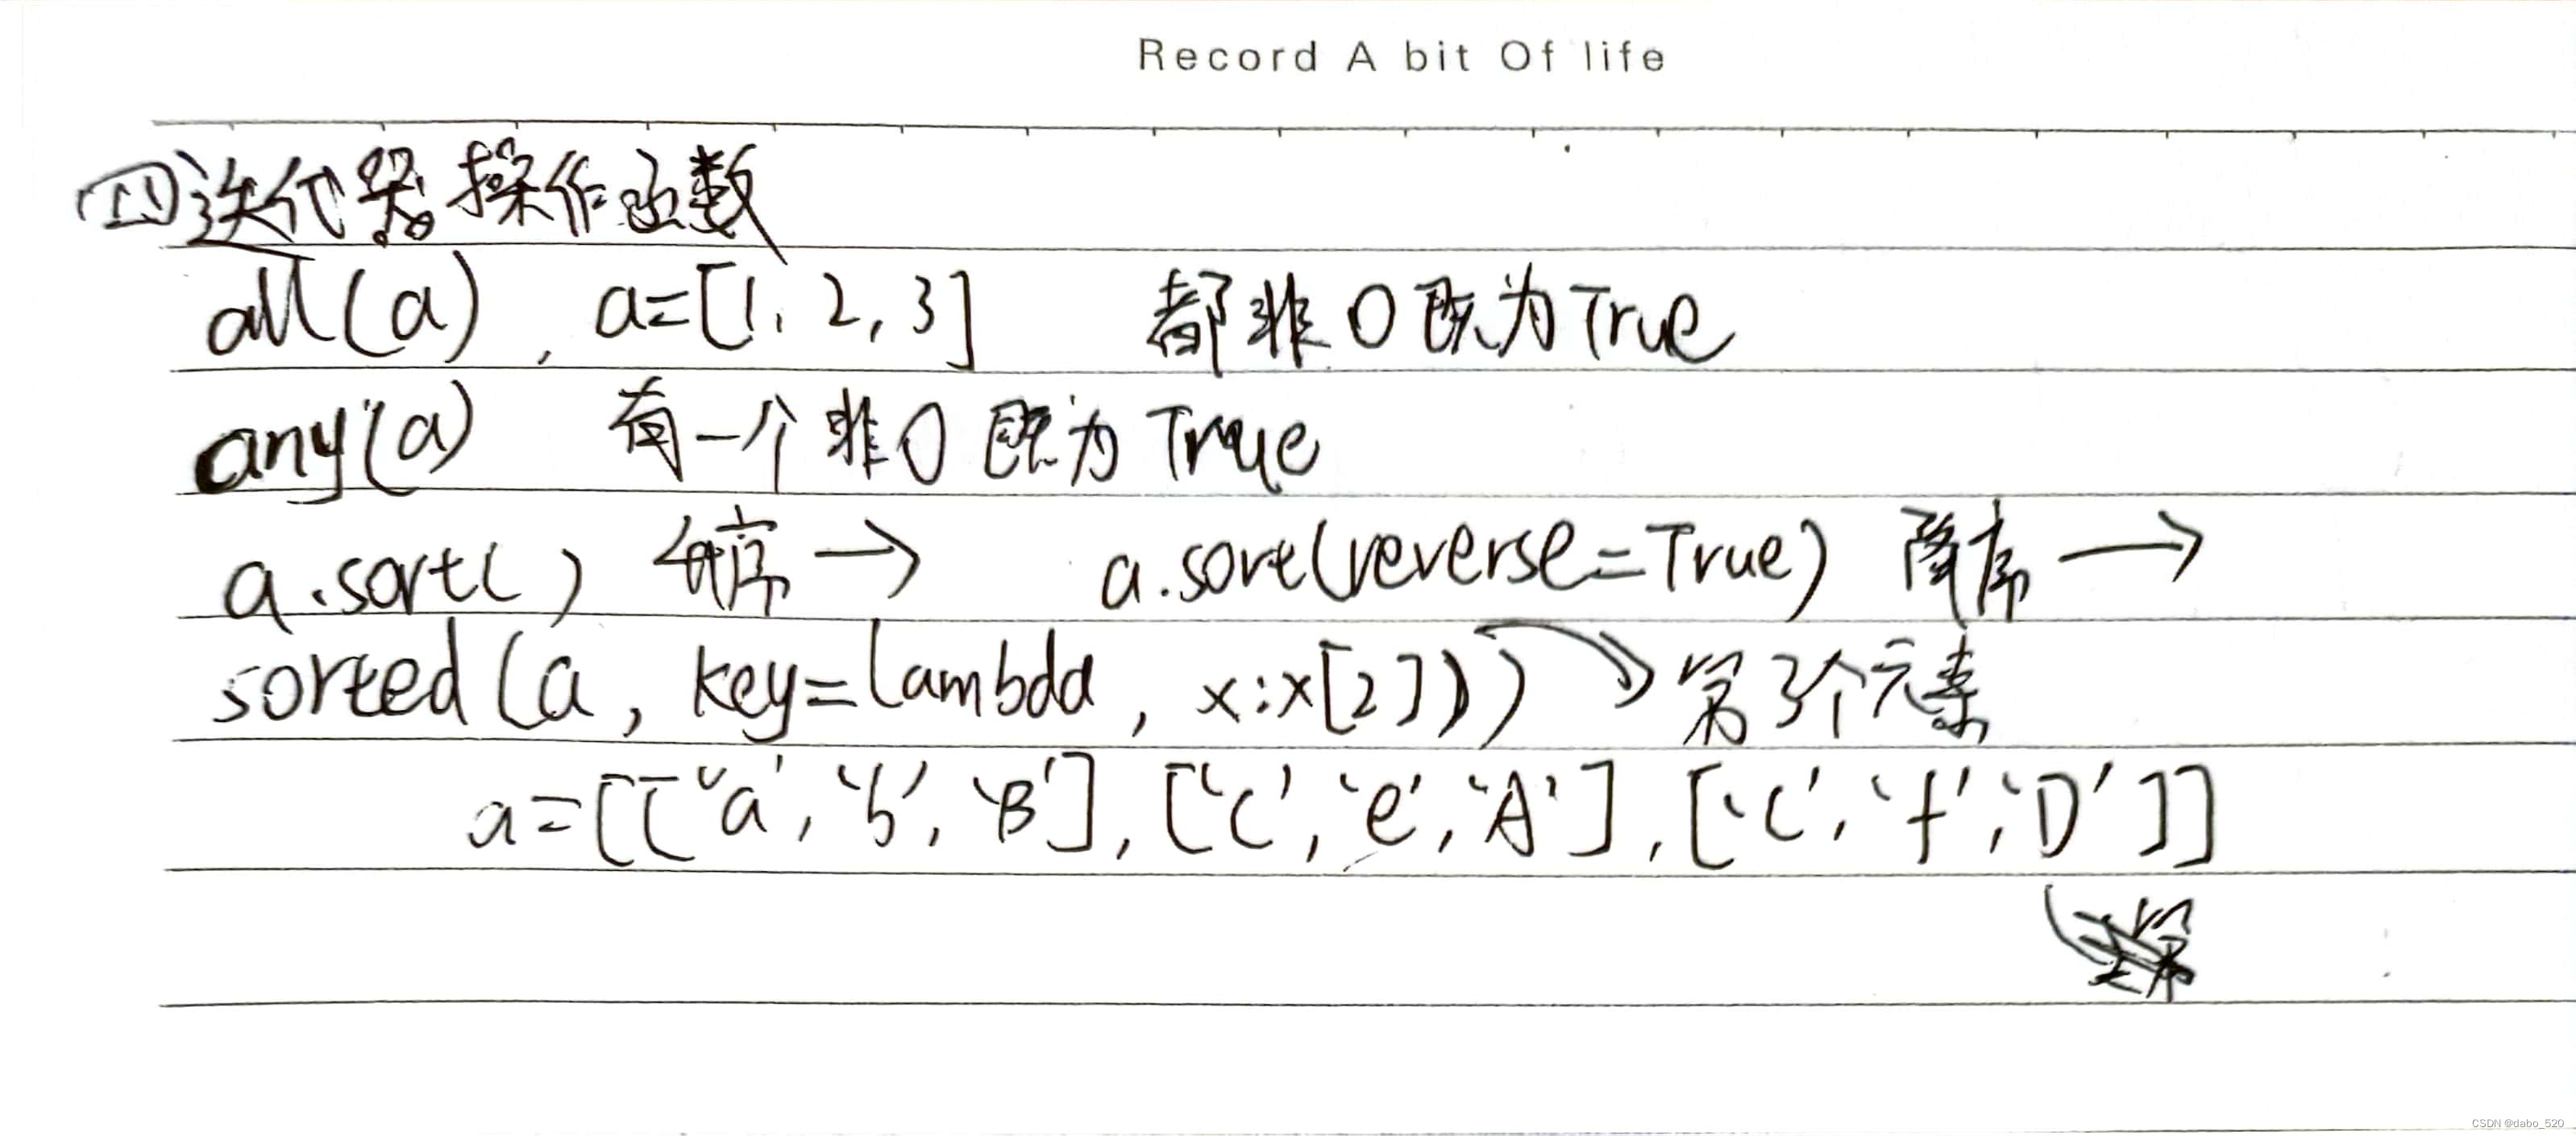 Record A bit Of life
四迭代器操作函数
all(a), a=[1, 2, 3] 都非0既为True
any(a) 有一个非0既为True
a.sort() 序→ a.sort(reverse=True) 降序→
sorted(a, key=lambda, x:x[2])) 第3个元素
a=[['a', 'b', 'B'], ['c', 'e', 'A'], ['c', 'f', 'D']]
CSDN @dabo_520